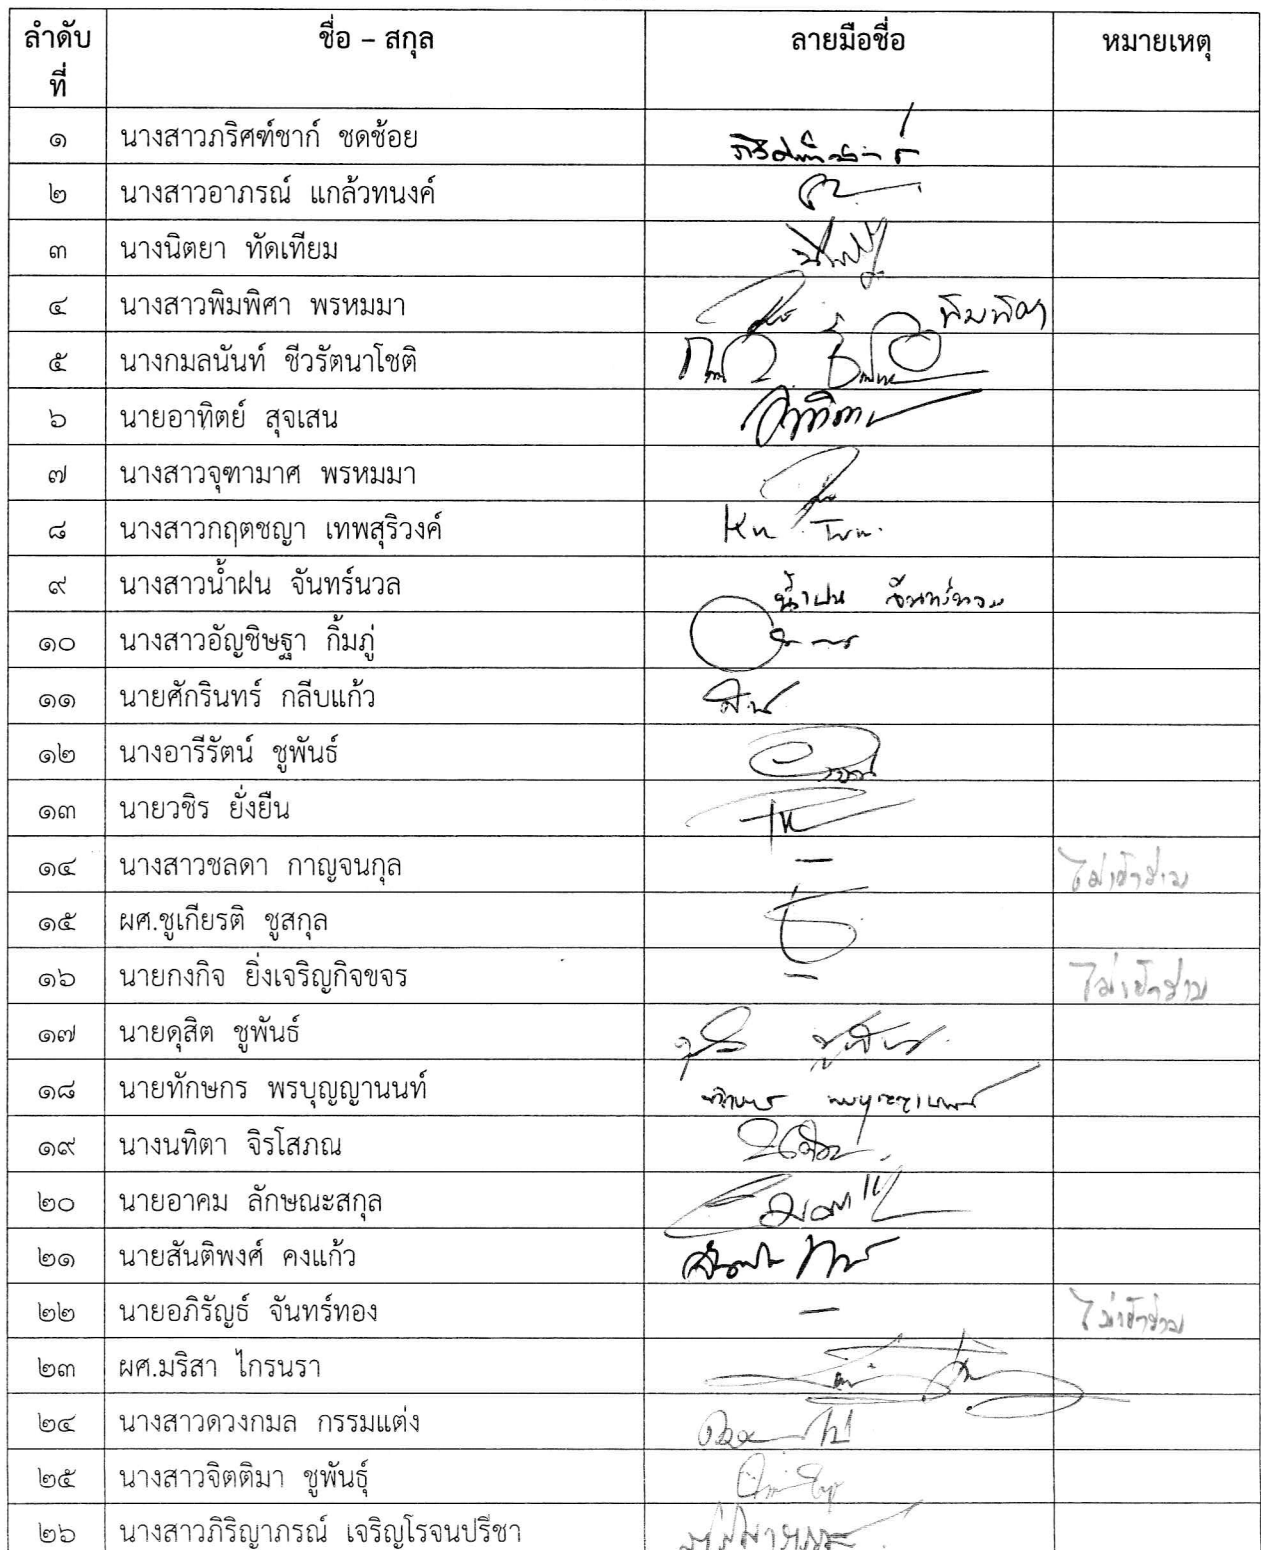 ลำดับ ชื่อ – สกุล ลายมือชื่อ หมายเหตุ
ที่
๑ นางสาวภริศฑ์ชาก์ ชดช้อย
๒ นางสาวอาภรณ์ แกล้วทนงค์
๓ นางนิตยา ทัดเทียม
๔ นางสาวพิมพิศา พรหมมา พิมพิศา
๕ นางกมลนันท์ ชีวรัตนาโชติ
๖ นายอาทิตย์ สุจเสน
๗ นางสาวจุฑามาศ พรหมมา
๘ นางสาวกฤตชญา เทพสุริวงค์
๙ นางสาวน้ำฝน จันทร์นวล น้ำฝน จันทร์นวล
๑๐ นางสาวอัญชิษฐา กิ้มภู่
๑๑ นายศักรินทร์ กลีบแก้ว
๑๒ นางอารีรัตน์ ชูพันธ์
๑๓ นายวชิร ยั่งยืน
๑๔ นางสาวชลดา กาญจนกุล – ไม่เข้าร่วม
๑๕ ผศ.ชูเกียรติ ชูสกุล
๑๖ นายกงกิจ ยิ่งเจริญกิจขจร – ไม่เข้าร่วม
๑๗ นายดุสิต ชูพันธ์
๑๘ นายทักษกร พรบุญญานนท์
๑๙ นางนทิตา จิรโสภณ
๒๐ นายอาคม ลักษณะสกุล
๒๑ นายสันติพงศ์ คงแก้ว
๒๒ นายอภิรัญธ์ จันทร์ทอง – ไม่เข้าร่วม
๒๓ ผศ.มริสา ไกรนรา
๒๔ นางสาวดวงกมล กรรมแต่ง
๒๕ นางสาวจิตติมา ชูพันธุ์
๒๖ นางสาวภิริญาภรณ์ เจริญโรจนปรีชา